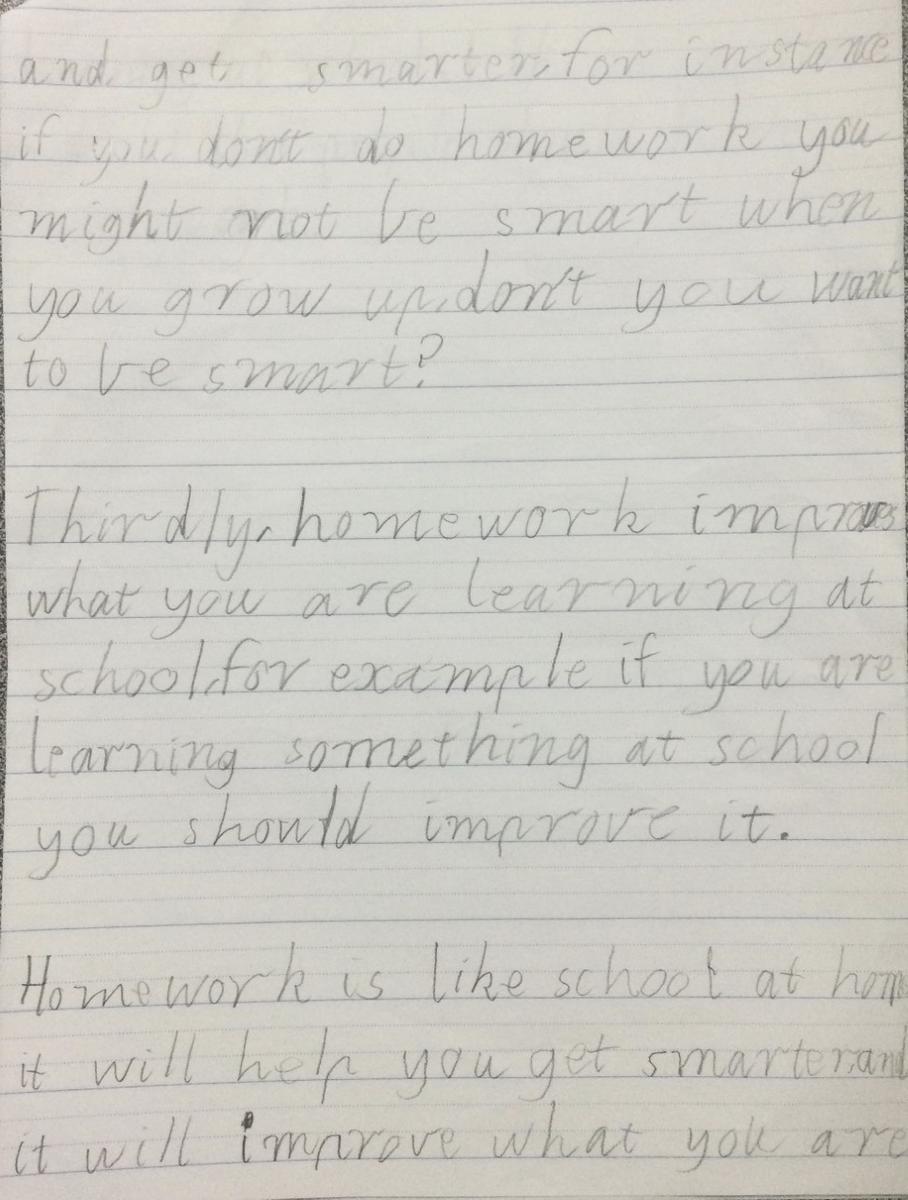 and get smarter, for instance
if you don't do homework you
might not be smart when
you grow up, don't you want
to be smart?
Thirdly, homework improves
what you are learning at
school, for example if you are
learning something at school
you should improve it.
Homework is like school at home
it will help you get smarter, and
it will improve what you are